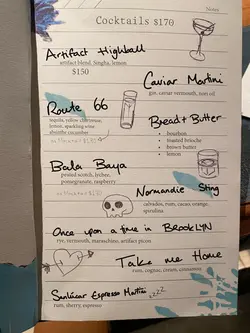 Notes
Cocktails $170
Artifact Highball
artifact blend, Singha, lemon
$150
Caviar Martini
gin, caviar vermouth, nori oil
Route 66
tequila, yellow chartreuse,
lemon, sparkling wine
absinthe cucumber
Bread + Butter
• bourbon
• toasted brioche
• brown butter
• lemon
Bala Baya
peated scotch, lychee,
pomegranate, raspberry
Normandie Sting
calvados, rum, cacao, orange,
spirulina
Once upon a time in BROOKLYN
rye, vermouth, maraschino, artifact picon
Take me Home
rum, cognac, cream, cinnamon
Sunlúcar Espresso Martini zzzz
rum, sherry, espresso